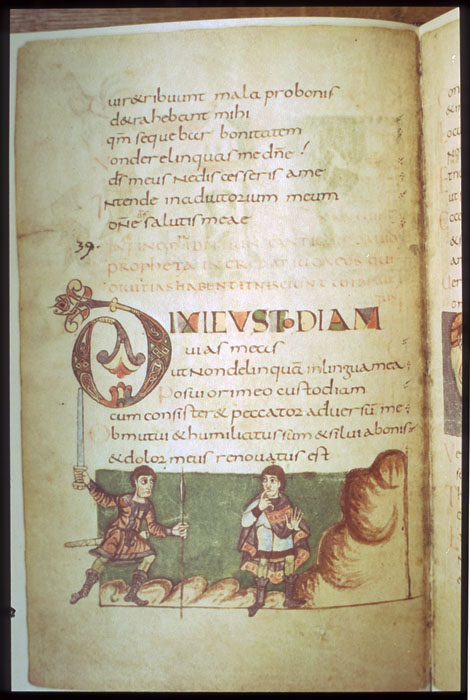 uir&ribuunt mala probonis
d&rahebant mihi
qm̄ sequebar bonitatem
onderelinquas me dn̄e !
ds̄ meus Nediscesseris a me
Ntende inadiutorium meum
dn̄e salutis meae
39.
PROPHETA
DIXI CVSTODIAM
uias meas
ut Nondelinquā inlinguamea;
Posui ori meo custodiam
cum consister& peccator aduersū me;
bmutui & humiliatus sum & silui abonis
& dolor meus renouatus est